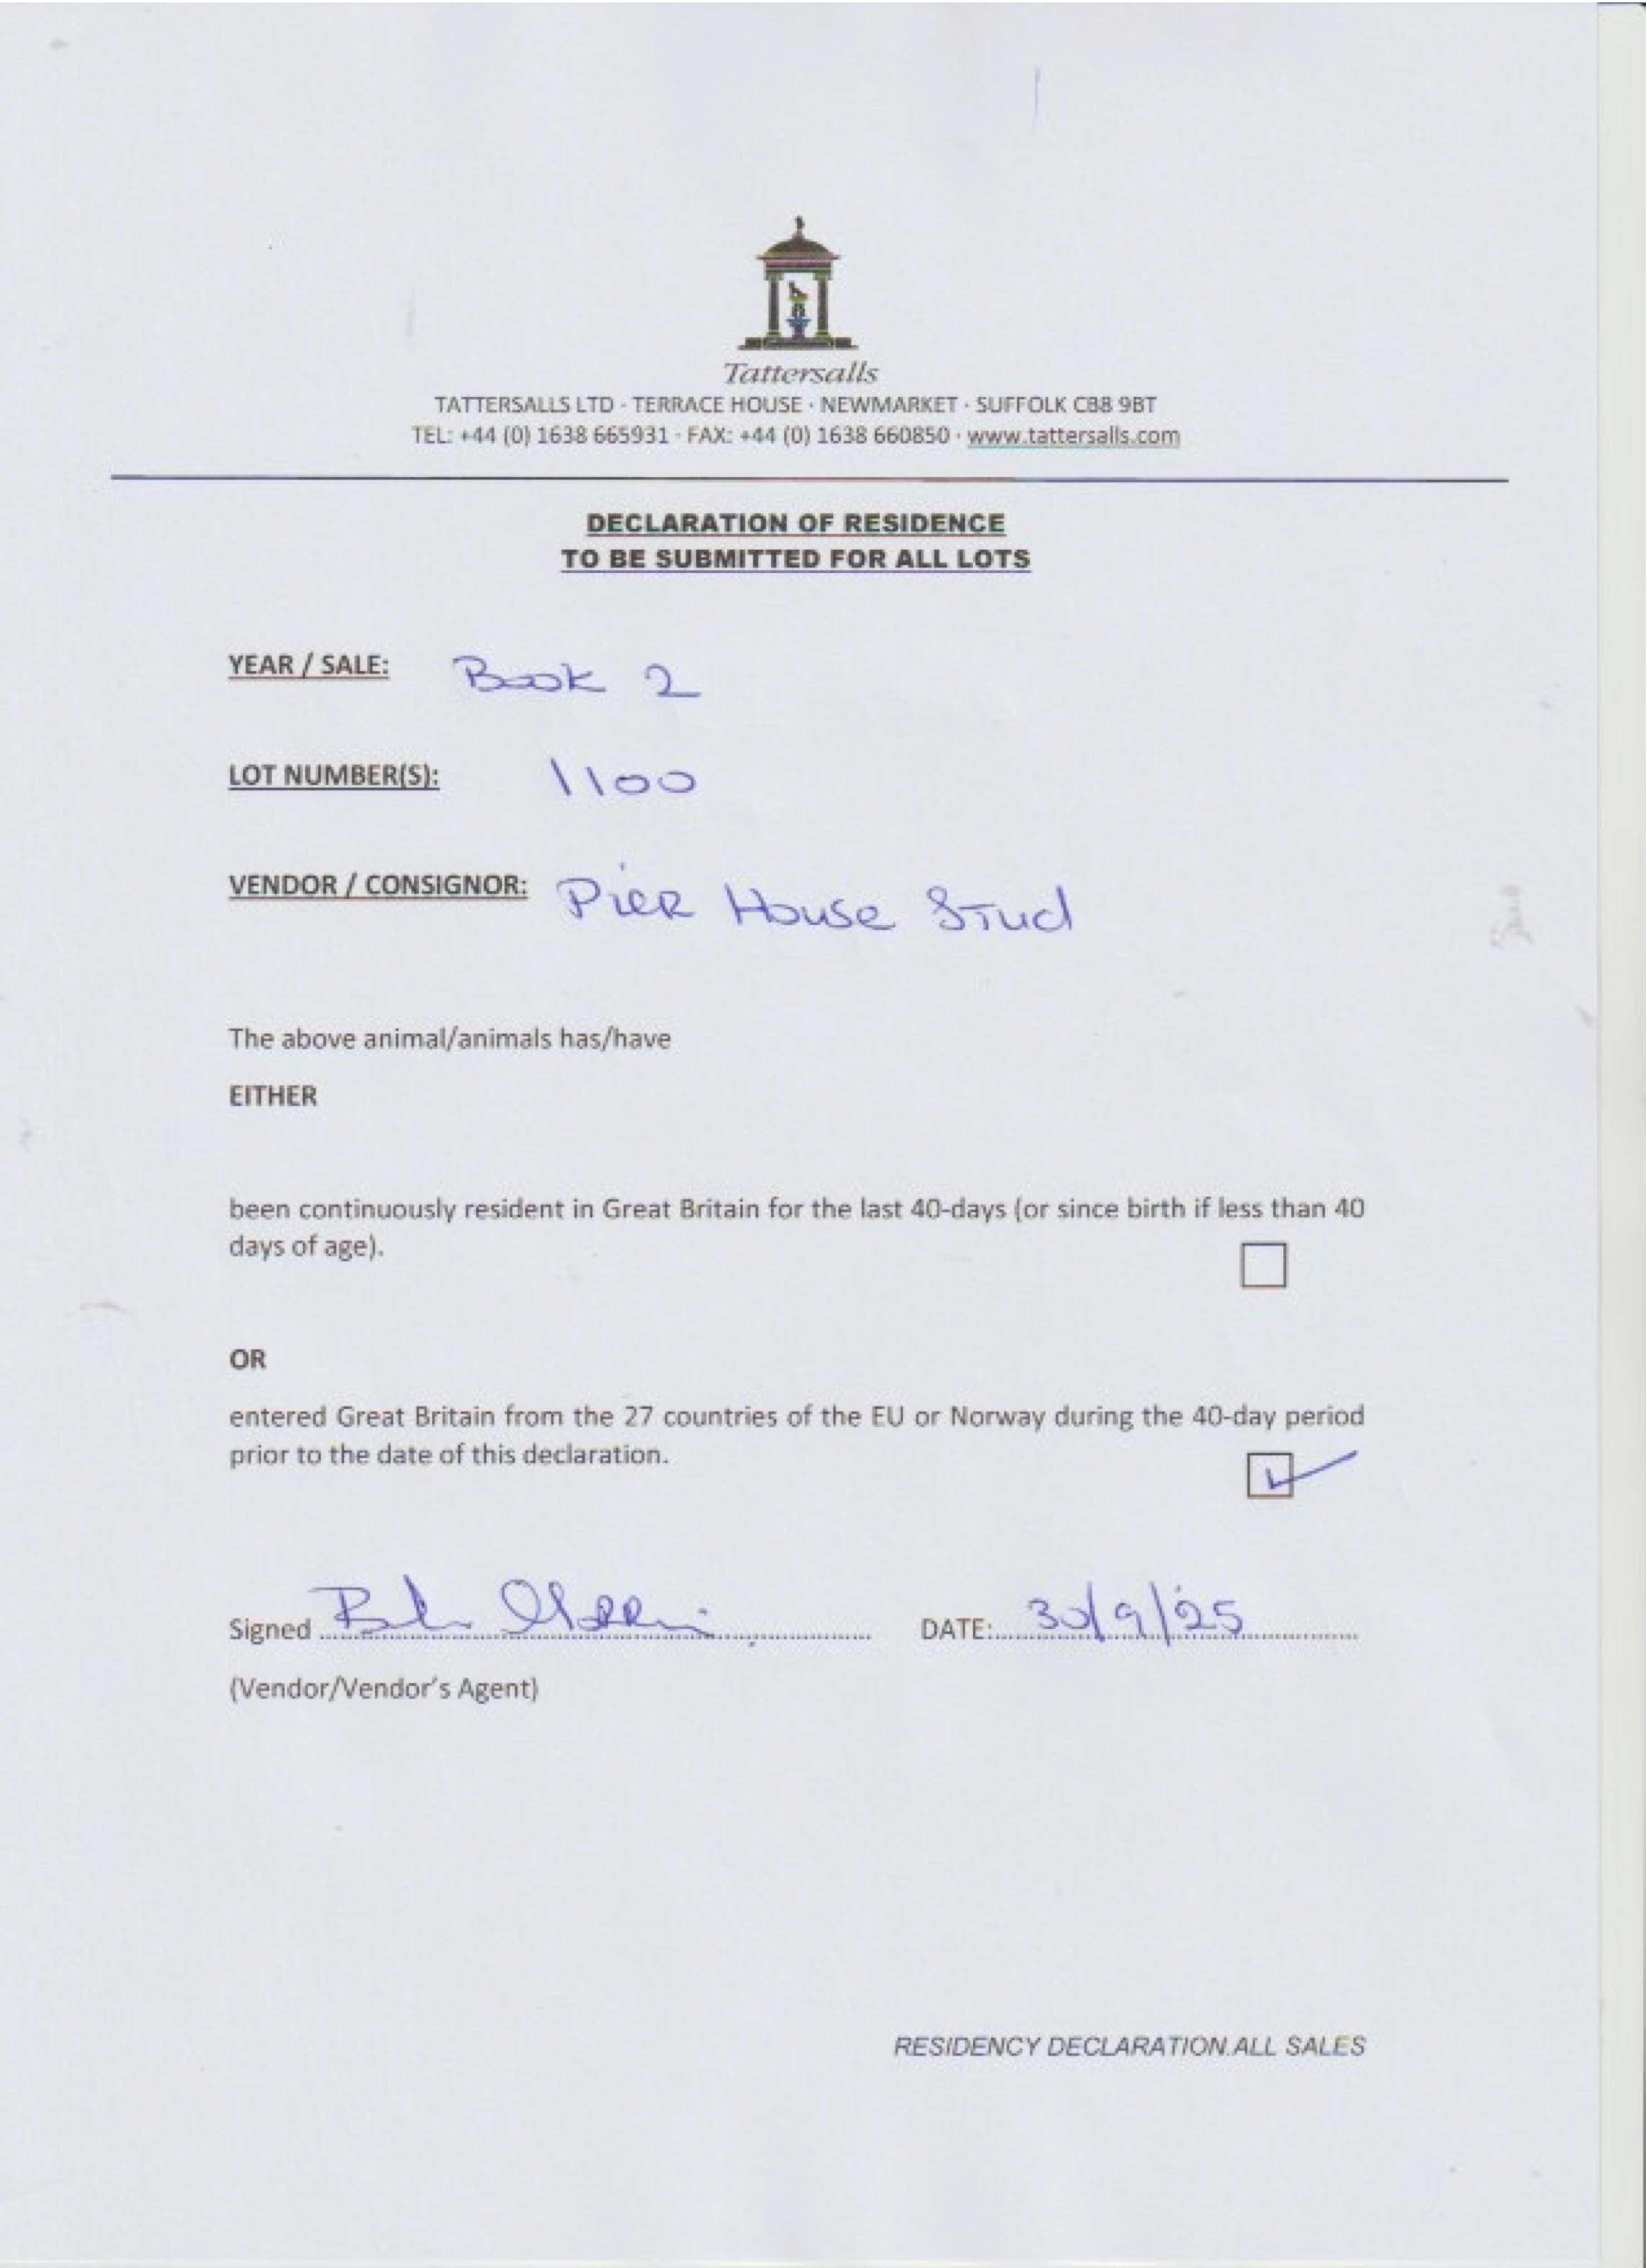 Tattersalls
TATTERSALLS LTD - TERRACE HOUSE · NEWMARKET · SUFFOLK CB8 9BT
TEL: +44 (0) 1638 665931 - FAX: +44 (0) 1638 660850 · www.tattersalls.com
DECLARATION OF RESIDENCE
TO BE SUBMITTED FOR ALL LOTS
YEAR / SALE: Book 2
LOT NUMBER(S): 1100
VENDOR / CONSIGNOR: Pier House Stud
The above animal/animals has/have
EITHER
been continuously resident in Great Britain for the last 40-days (or since birth if less than 40
days of age).
OR
entered Great Britain from the 27 countries of the EU or Norway during the 40-day period
prior to the date of this declaration.
Signed DATE: 30/9/25
(Vendor/Vendor's Agent)
RESIDENCY DECLARATION.ALL SALES